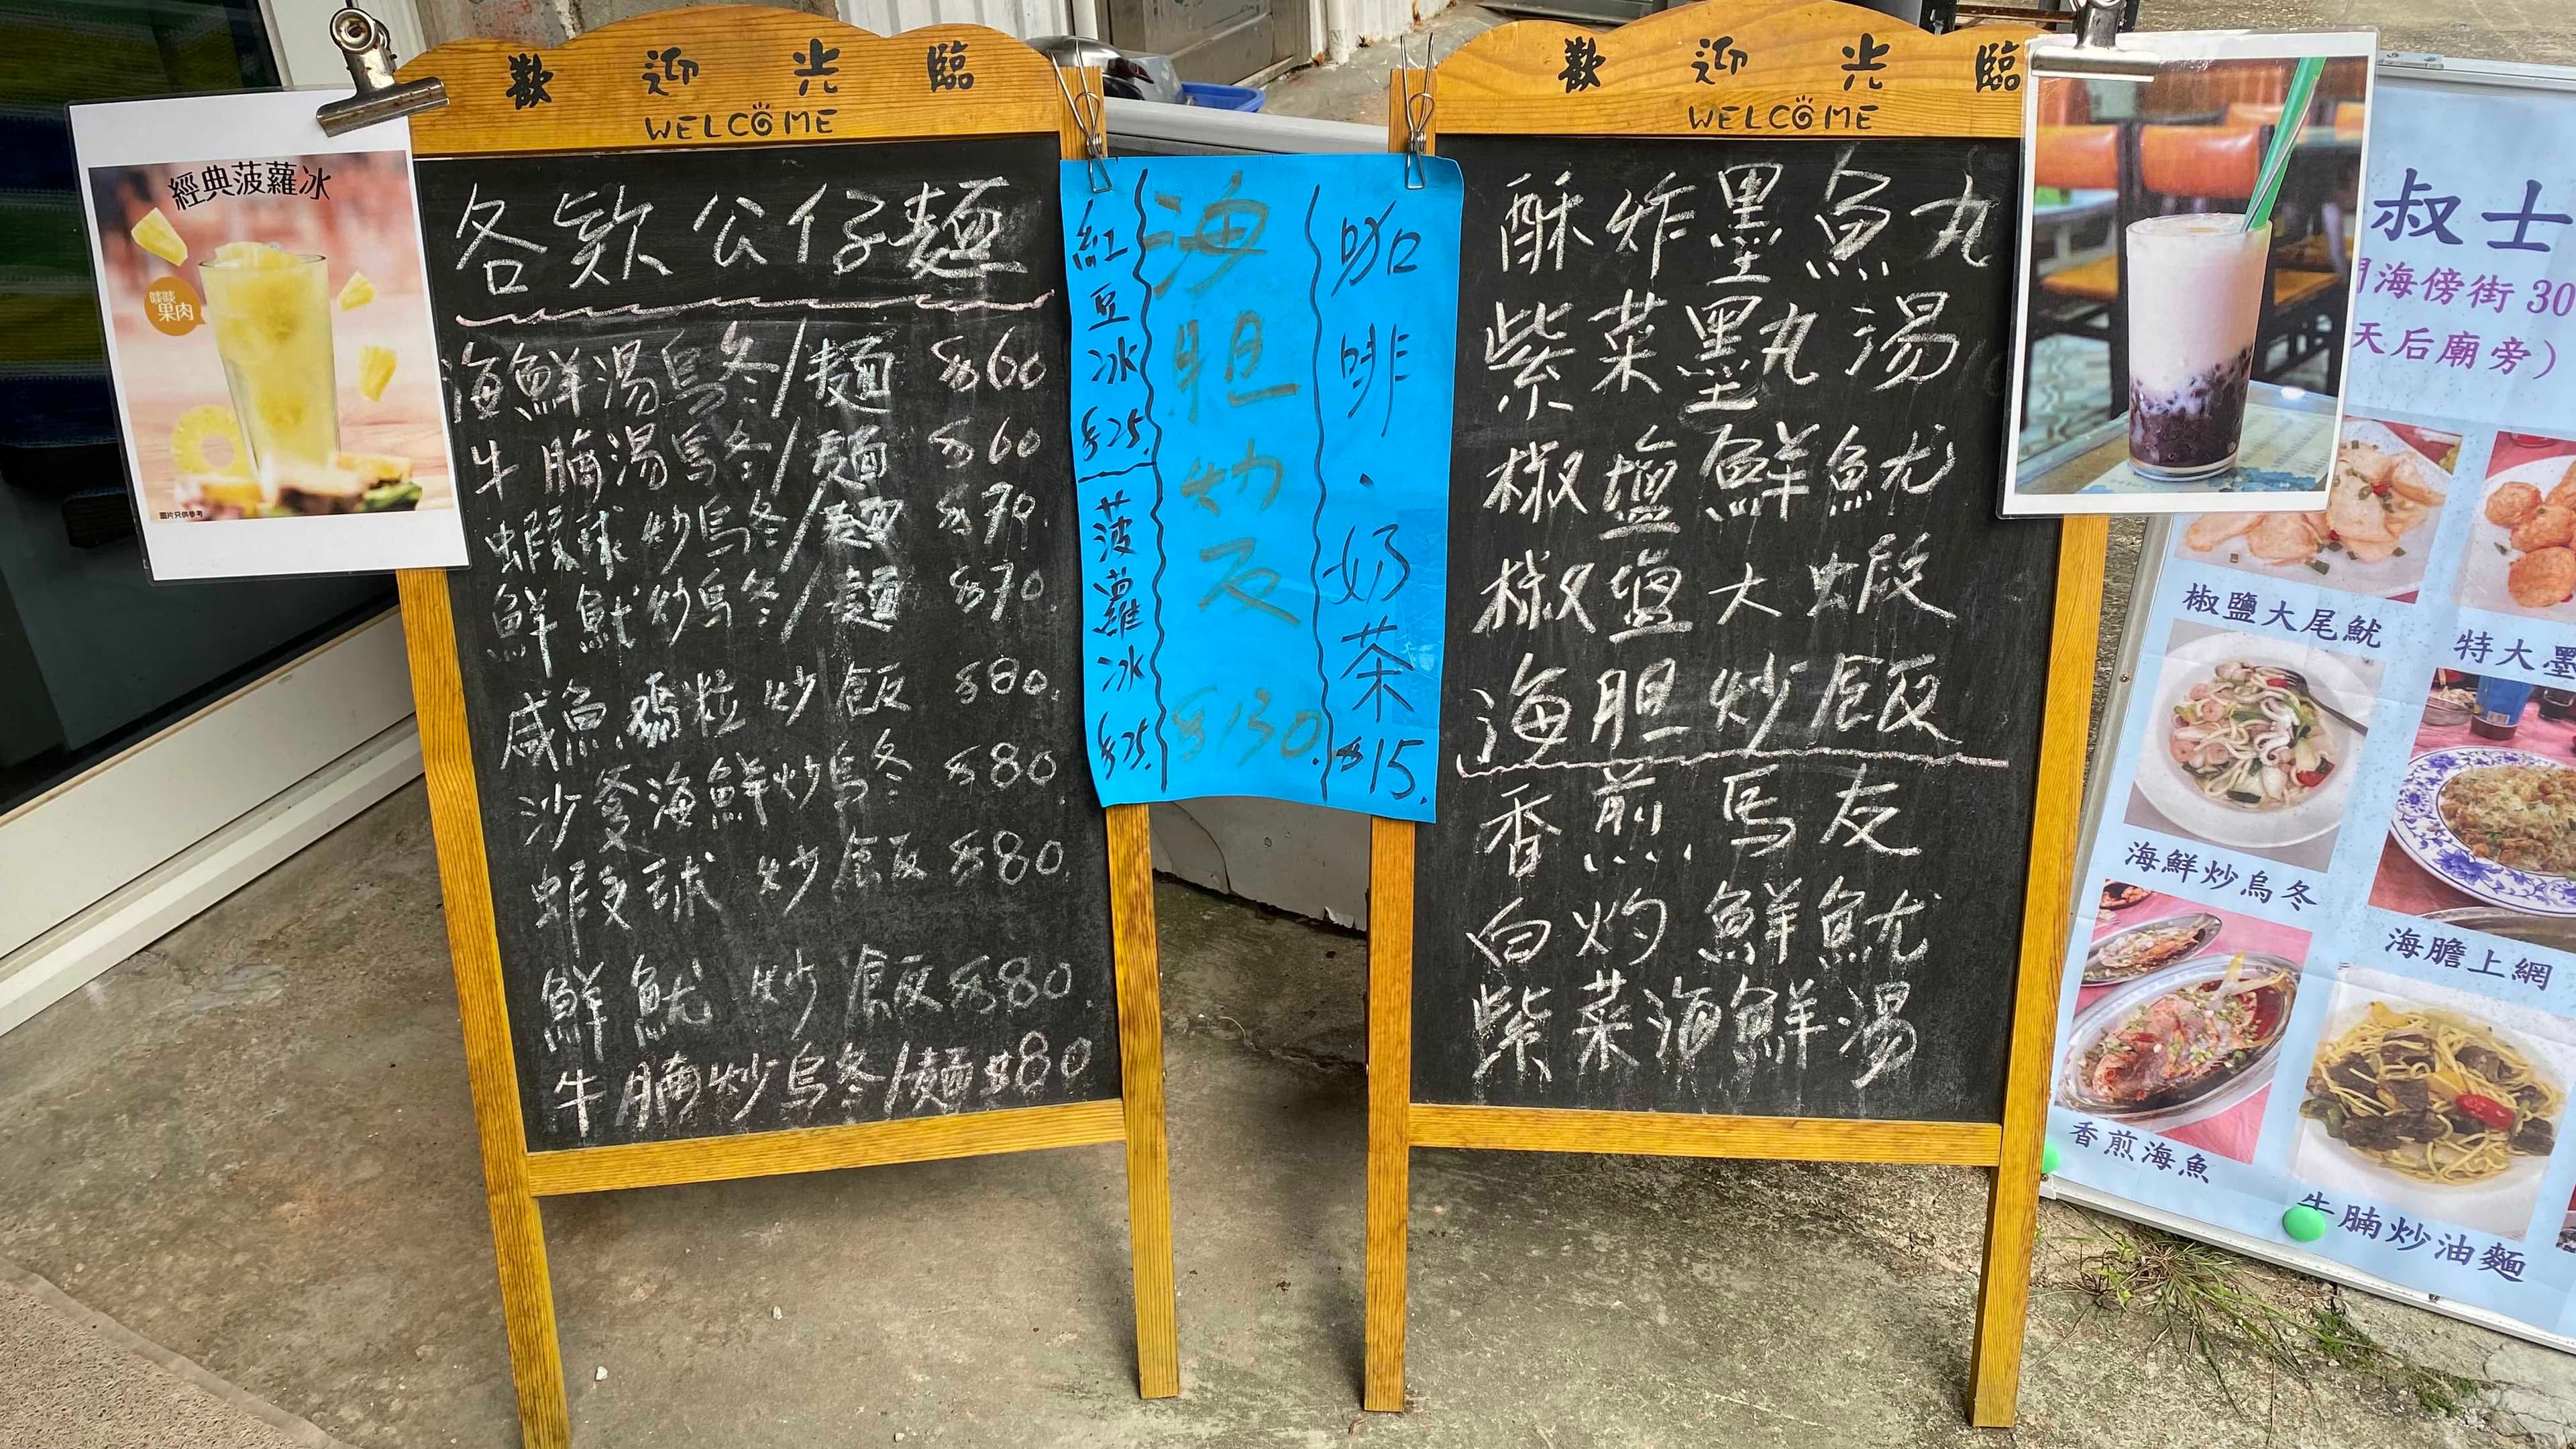 經典菠蘿冰
啖啖
果肉
圖片只供參考
歡迎光臨
WELCOME
各款公仔麵
海鮮湯烏冬/麵 $60
牛腩湯烏冬/麵 $60
蝦球炒烏冬/麵 $70.
鮮魷炒烏冬/麵 $70.
咸魚雞粒炒飯 $80.
沙爹海鮮炒烏冬 $80.
蝦球炒飯 $80.
鮮魷炒飯 $80.
牛腩炒烏冬/麵 $80.
咖啡.奶茶 $15.
海胆炒反 $130.
紅豆冰 $25.
菠蘿冰 $25.
歡迎光臨
WELCOME
酥炸墨魚丸
紫菜墨丸湯
椒鹽鮮魷
椒鹽大蝦
海胆炒飯
香煎馬友
白灼鮮魷
紫菜海鮮湯
叔士
海傍街 30
天后廟旁）
椒鹽大尾魷
特大墨
海鮮炒烏冬
海膽上網
香煎海魚
牛腩炒油麵